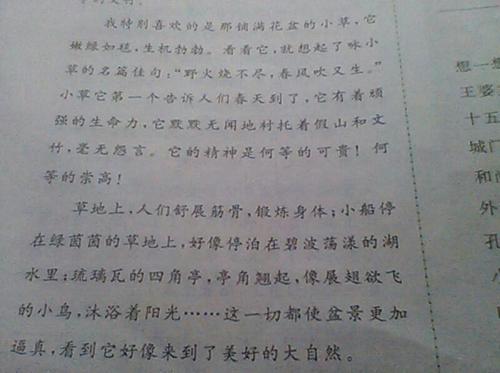 我特别喜欢的是那铺满花盆的小草，它
嫩绿如毯，生机勃勃。看着它，就想起了咏小
草的名篇佳句：“野火烧不尽，春风吹又生。”
小草它第一个告诉人们春天到了，它有着顽
强的生命力，它默默无闻地衬托着假山和文
竹，毫无怨言。它的精神是何等的可贵！何
等的崇高！
草地上，人们舒展筋骨，锻炼身体；小船停
在绿茵茵的草地上，好像停泊在碧波荡漾的湖
水里；琉璃瓦的四角亭，亭角翘起，像展翅欲飞
的小鸟，沐浴着阳光……这一切都使盆景更加
逼真，看到它好像来到了美好的大自然。
想一想
王婆
十五
城门
和尚
外
孔